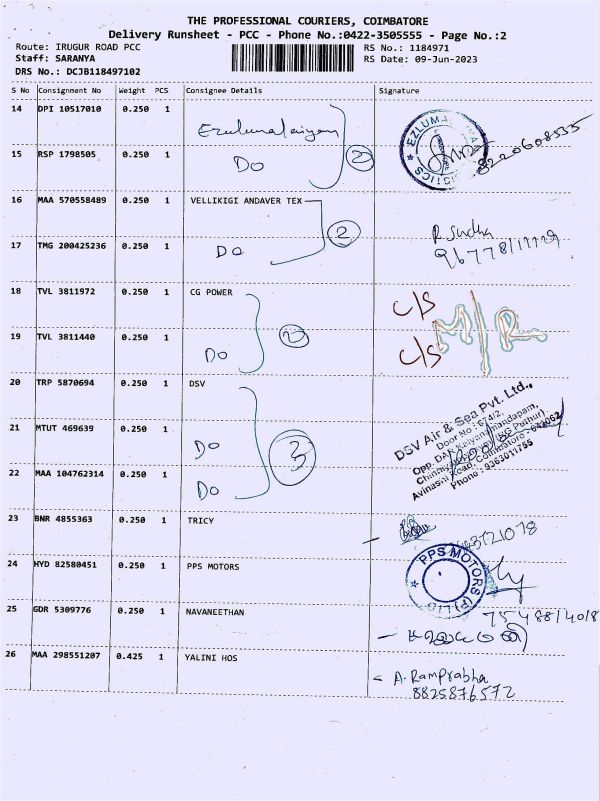 THE PROFESSIONAL COURIERS, COIMBATORE
Delivery Runsheet - PCC - Phone No.:0422-3505555 - Page No.:2
Route: IRUGUR ROAD PCC
RS No.: 1184971
Staff: SARANYA
RS Date: 09-Jun-2023
DRS No.: DCJB118497102
S No Consignment No Weight PCS Consignee Details Signature
14 DPI 10517010 0.250 1
15 RSP 1798505 0.250 1 Do 2 8220608535
16 MAA 570558489 0.250 1 VELLIKIGI ANDAVER TEX
17 TMG 200425236 0.250 1 Do 2 R Sudha
18 TVL 3811972 0.250 1 CG POWER C/S
19 TVL 3811440 0.250 1 Do 2 C/S M/R
20 TRP 5870694 0.250 1 DSV
21 MTUT 469639 0.250 1 Do 3
22 MAA 104762314 0.250 1 Do
DSV Air & Sea Pvt. Ltd.,
Door No : 674/2,
Avinashi Road, Coimbatore - 641062
Phone : 9363011755
23 BNR 4855363 0.250 1 TRICY
24 HYD 82580451 0.250 1 PPS MOTORS PPS MOTORS (P) LTD
25 GDR 5309776 0.250 1 NAVANEETHAN
26 MAA 298551207 0.425 1 YALINI HOS A. Ramprabha
8825876572